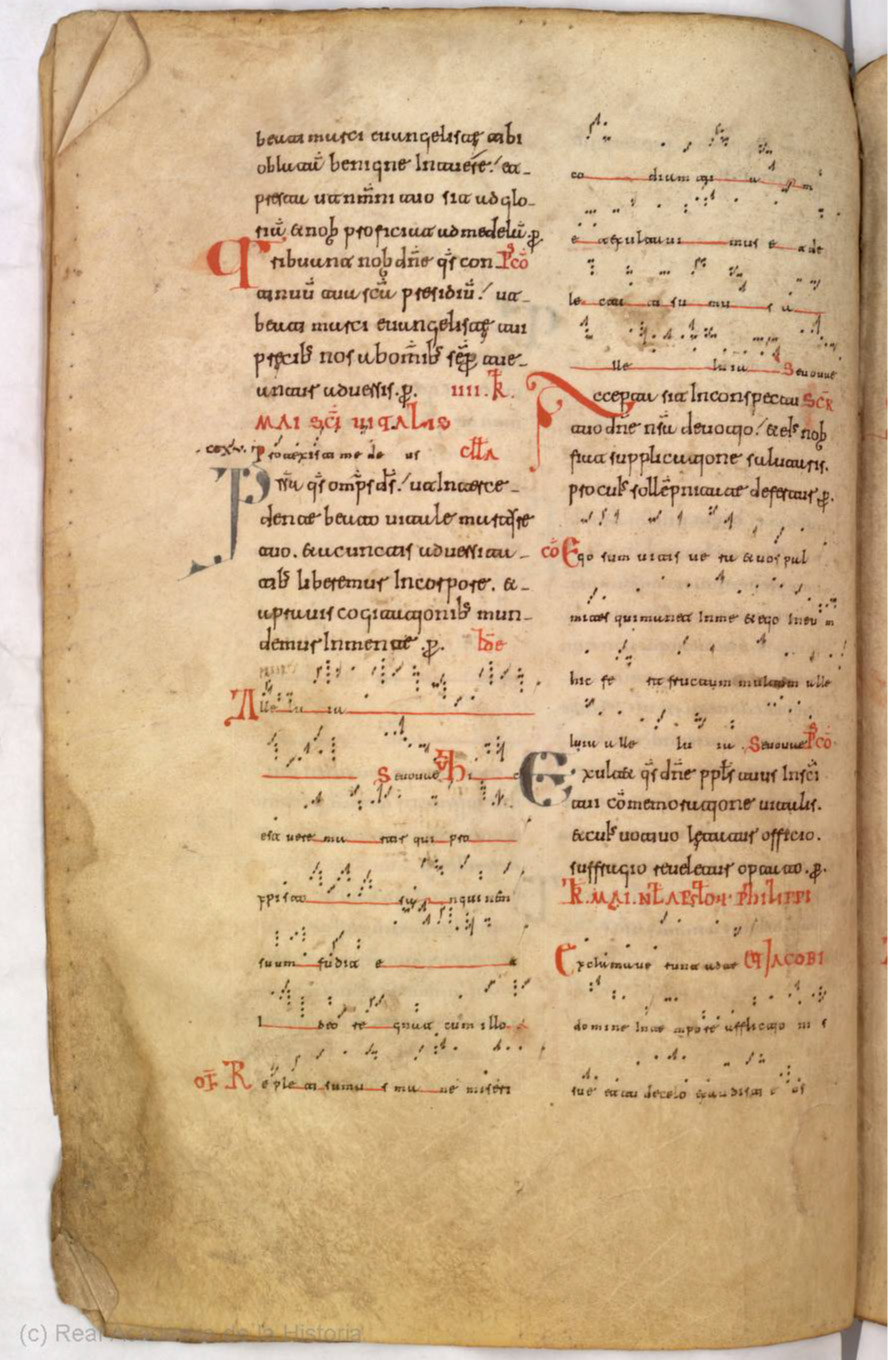 beati marci euangeliste tibi
oblatũ benigne Intuere. et
prestau ut anĩmi tuo sit ad glo-
riã & nob proficiat ad medelã. p.
Tribuat nob dñe q̃s con PCÕ
tinuũ tuũ scũ presidiũ. ut
beati marci euangeliste tui
precib nos ab omib sẽp tue-
aris aduersis. p. IIII. K.
MAI SCI UITALIS
Protexisti me de us CLLA
Presta q̃s omps ds. ut Interce-
dente beato uitale martire
tuo. & a cunctis aduersitati-
tib liberemur In corpore. &
a prauis cogitationib mun-
demur In mente. p.
Alle lu ia
Seuouae Hi
est uere mar tir qui pro
xpisto sanguinẽ
suum fudit e
deo re gna cum illo
OF Reple ti sumus ma ne miseri
cordiam tu a m
et exultaui mus et de
lec ta ti su mus a
lle lu ia Seuouae
Accepta sit In conspectu SCR
tuo dñe nrã deuotio. & eis nob
fiat supplicatione salutaris.
pro cuius sollẽpnitate defertur. p.
CÕ Ego sum uitis ue ra & uos pal
mites qui manet In me & ego In eum
hic fe rt fructum multum alle
luia alle lu ia Seuouae PCÕ
Exultet q̃s dñe ppls tuus In sci
tui cõmemoratione uitalis.
& cuius uotiuo letatur officio.
suffragio releuetur optato. p.
K. MAI. NLAPSTOR. PhILIPPI
Exclamauer runt ad te ET IACOBI
domine In te mpore afflictio ni s
sue et tu decelo exaudisti e os
(c) Real Academia de la Historia